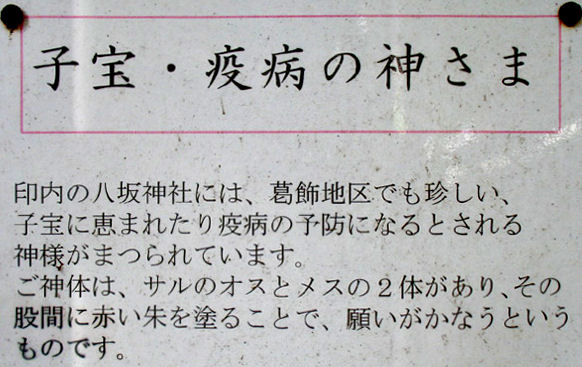 子宝・疫病の神さま
印内の八坂神社には、葛飾地区でも珍しい、
子宝に恵まれたり疫病の予防になるとされる
神様がまつられています。
ご神体は、サルのオスとメスの２体があり、その
股間に赤い朱を塗ることで、願いがかなうという
ものです。